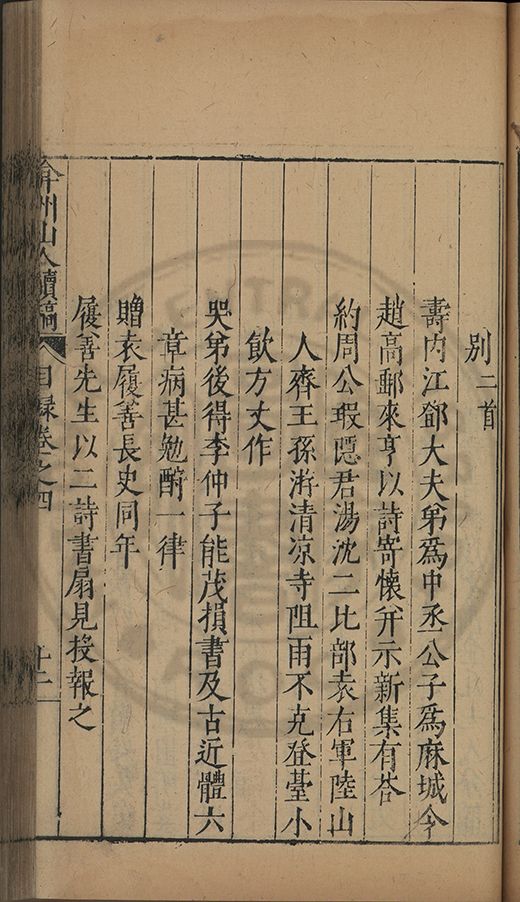 別二首
壽内江鄧大夫弟爲中丞公子爲麻城令
趙高郵來亨以詩寄懷并示新集有荅
約周公瑕隱君湯沈二比部袁右軍陸山
人齊王孫游清凉寺阻雨不克登臺小
飲方丈作
哭弟後得李仲子能茂損書及古近體六
章病甚勉酧一律
贈袁履善長史同年
履善先生以二詩書扇見投報之
弇州山人續稿 目録卷之四 十二